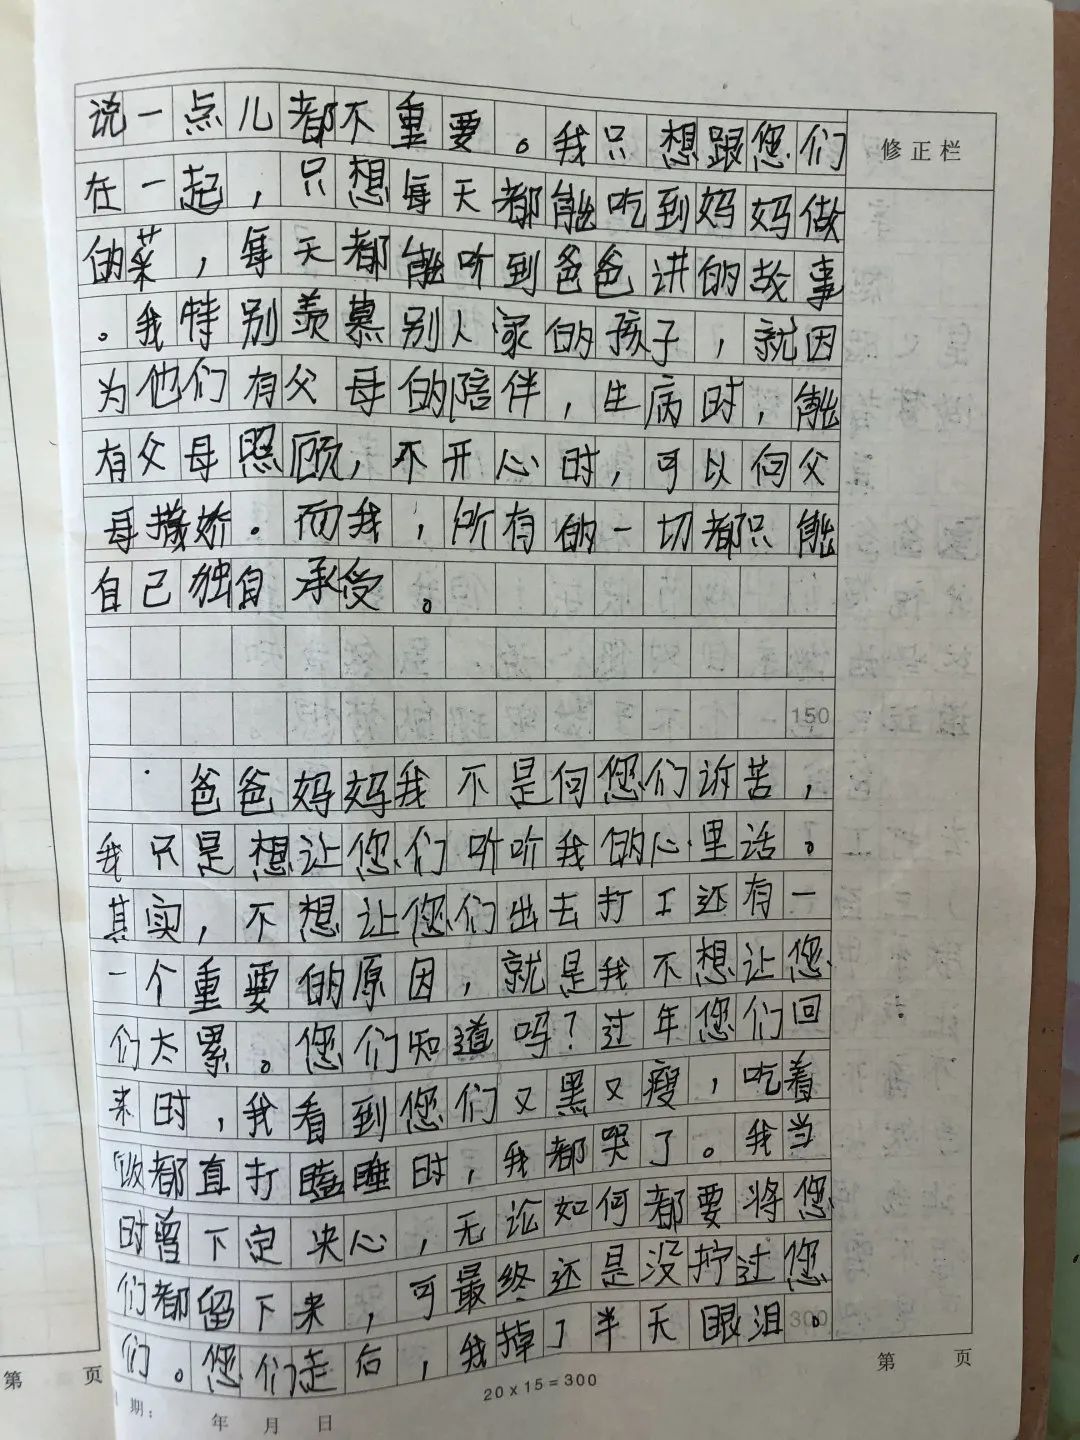 说一点儿都不重要。我只想跟您们
修正栏
在一起，只想每天都能吃到妈妈做
的菜，每天都能听到爸爸讲的故事
。我特别羡慕别人家的孩子，就因
为他们有父母的陪伴，生病时，能
有父母照顾，不开心时，可以向父
母撒娇。而我，所有的一切都只能
自己独自承受。
150
爸爸妈妈我不是向您们诉苦，
我只是想让您们听听我的心里话。
其实，不想让您们出去打工还有一
一个重要的原因，就是我不想让您
们太累。您们知道吗？过年您们回
来时，我看到您们又黑又瘦，吃着
饭都直打瞌睡时，我都哭了。我当
时曾下定决心，无论如何都要将您
们都留下来，可最终还是没拧过您
们。您们走后，我掉了半天眼泪。
300
第 页
第 页
20×15=300
期： 年 月 日